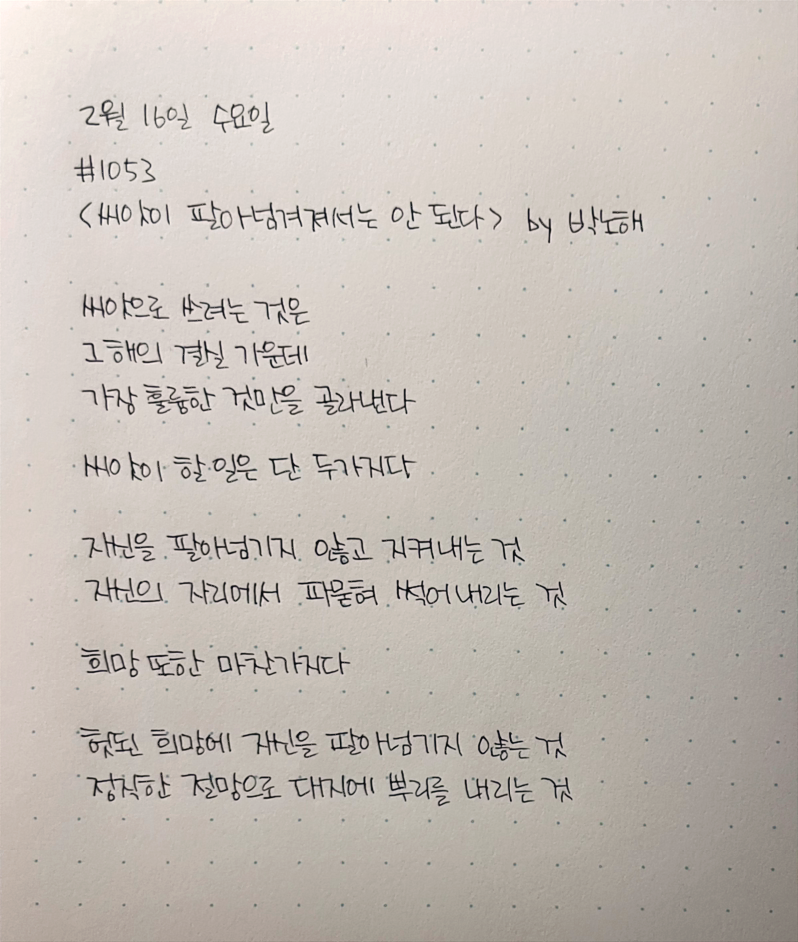 2월 16일 수요일
#1053
<씨앗이 팔아넘겨져서는 안 된다> by 박노해
씨앗으로 쓰려는 것은
그 해의 결실 가운데
가장 훌륭한 것만을 골라낸다
씨앗이 할 일은 단 두가지다
자신을 팔아넘기지 않고 지켜내는 것
자신의 자리에서 파묻혀 썩어내리는 것
희망 또한 마찬가지다
헛된 희망에 자신을 팔아넘기지 않는 것
정직한 절망으로 대지에 뿌리를 내리는 것